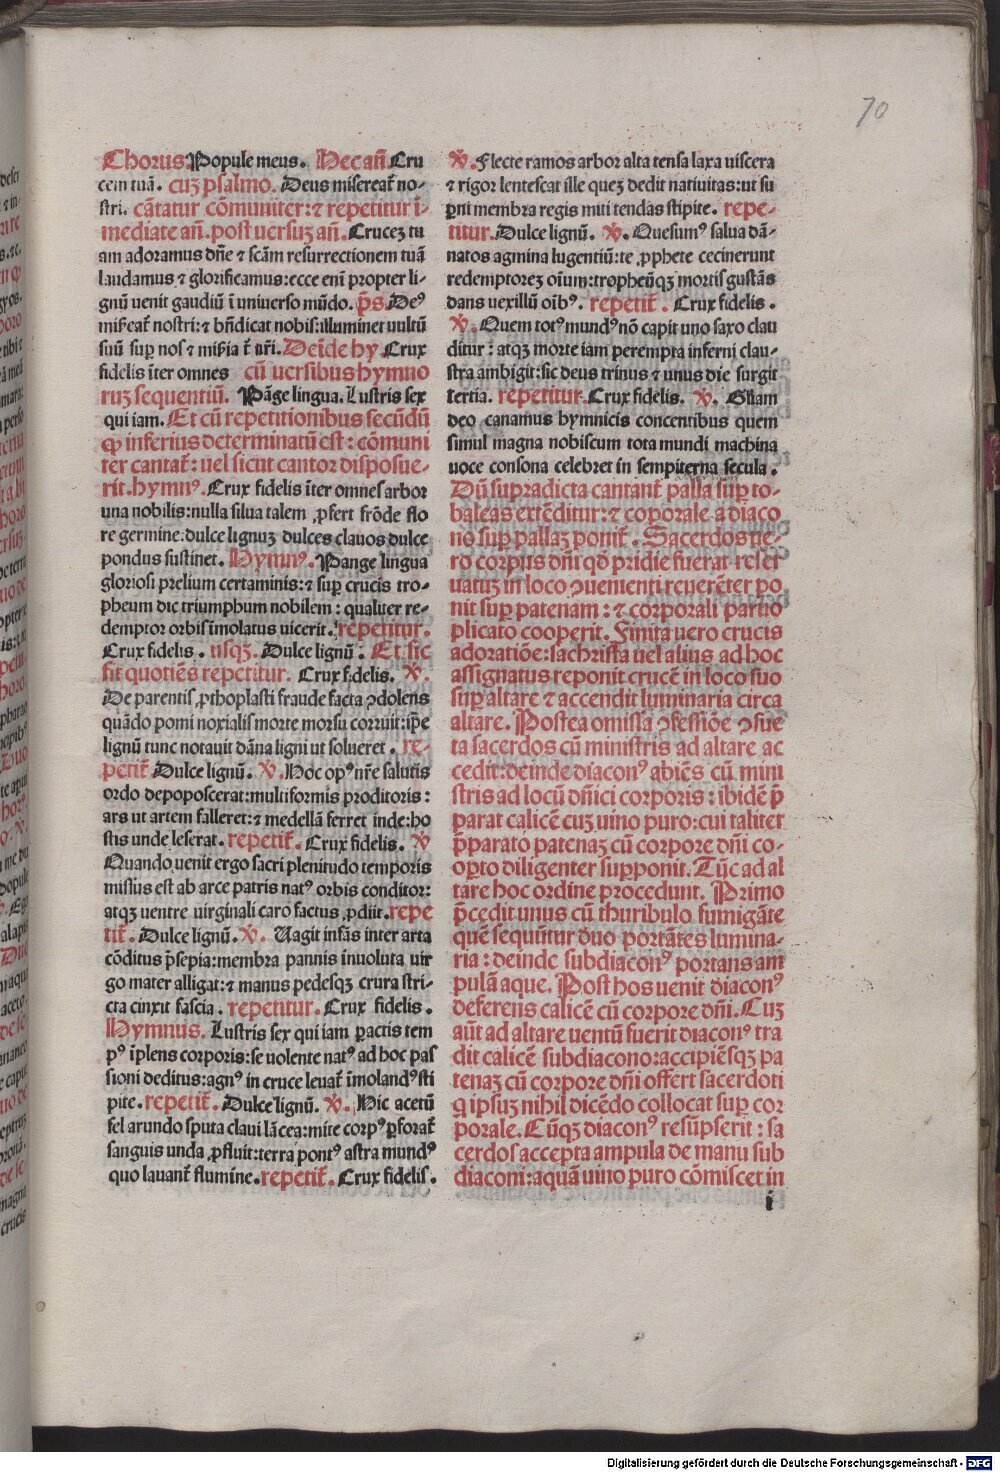 70
Chorus. Popule meus. Hec añ. Cru
cem tuã. cuz psalmo. Deus misereat᷑ no-
stri. cãtatur cõmuniter: ⁊ repetitur ĩ-
mediate añ. post uersuz añ. Crucez tu
am adoramus dñe ⁊ scãm resurrectionem tuã
laudamus ⁊ glorificamus: ecce eni propter li-
gnũ uenit gaudiũ ĩ uniuerso mũdo. p̃s. De⁹
mi₎eat᷑ nostri: ⁊ bñdicat nobis: illuminet uultũ
suũ sup̱ nos ⁊ mi₎ia t᷑ n̄ri. Deĩde hy. Crux
fidelis ĩter omnes cũ uersibus hymno
ruz sequentiũ. Pãge lingua. Lustris sex
qui iam. Et cũ repetitionibus secũdũ
ꝙ inferius determinatũ est: cõmuni
ter cantat᷑: uel sicut cantor disposue-
rit. hymn⁹. Crux fidelis ĩter omnes arbor
una nobilis: nulla silua talem ꝓfert frõde flo
re germine: dulce lignuz dulces clauos dulce
pondus sustinet. Hymn⁹. Pange lingua
gloriosi prelium certaminis: ⁊ sup̱ crucis tro-
pheum dic triumphum nobilem: qualiter re-
demptor orbis ĩmolatus uicerit. repetitur.
Crux fidelis. usqz. Dulce lignũ. Et sic
fit quotiẽs repetitur. Crux fidelis. ℣.
De parentis ꝓthoplasti fraude facta ꝯdolens
quãdo pomi noxialis morte morsu corruit: ip̃e
lignũ tunc notauit dãna ligni ut solueret. re-
petit᷑. Dulce lignũ. ℣. Hoc op⁹ nr̃e salutis
ordo depoposcerat: multiformis proditoris:
ars ut artem falleret: ⁊ medellã ferret inde: ho
stis unde leserat. repetit᷑. Crux fidelis. ℣
Quando uenit ergo sacri plenitudo temporis
missus est ab arce patris nat⁹ orbis conditor:
atqz uentre uirginali caro factus ꝓdiit. repe
tit᷑. Dulce lignũ. ℣. Uagit infãs inter arta
cõditus p̃sepia: membra pannis inuoluta uir
go mater alligat: ⁊ manus pedesqz crura stri-
cta cinxit fascia. repetitur. Crux fidelis.
Hymnus. Lustris sex qui iam p̱actis tem
p⁹ ĩplens corporis: se uolente nat⁹ ad hoc pas
sioni deditus: agn⁹ in cruce leuat᷑ ĩmoland⁹ sti
pite. repetit᷑. Dulce lignũ. ℣. Hic acetũ
fel arundo sputa claui lãcea: mite corp⁹ p̱forat᷑
sanguis unda ꝓfluit: terra pont⁹ astra mund⁹
quo lauant᷑ flumine. repetit᷑. Crux fidelis.
℣. Flecte ramos arbor alta tensa laxa uiscera
⁊ rigor lentescat ille quez dedit natiuitas: ut su
p̱ni membra regis miti tendas stipite. repe-
titur. Dulce lignũ. ℣. Quesum⁹ salua dã-
natos agmina lugentiũ: te ꝓphete cecinerunt
redemptorez oĩum: tropheũqz mortis gustãs
dans uexillũ oĩb⁹. repetit᷑. Crux fidelis.
℣. Quem tot⁹ mund⁹ nõ capit uno saxo clau
ditur: atqz morte iam perempta inferni clau-
stra ambigit: sic deus trinus ⁊ unus die surgit
tertia. repetitur. Crux fidelis. ℣. Gl̃iam
deo canamus hymnicis concentibus quem
simul magna nobiscum tota mundi machina
uoce consona celebret in sempiterna secula.
Dũ supradicta cantant᷑ palla sup̱ to-
baleas extẽditur: ⁊ coporale a diaco
no sup̱ pallaz ponit᷑. Sacerdos ue-
ro corpus dñi qď pridie fuerat reser
uatuz in loco ꝯuenienti reuerẽter po
nit sup̱ patenam: ⁊ corporali paruo
plicato cooperit. Finita uero crucis
adoratiõe: sachrista uel alius ad hoc
assignatus reponit crucẽ in loco suo
sup̱ altare ⁊ accendit luminaria circa
altare. Postea omissa ꝯfessiõe ꝯsue
ta sacerdos cũ ministris ad altare ac
cedit: deinde diacon⁹ abiẽs cũ mini
stris ad locũ dñici corporis: ibidẽ p̃
parat calicẽ cuz uino puro: cui taliter
p̃parato patenaz cũ corpore dñi co-
op̱to diligenter sup̱ponit. Tũc ad al
tare hoc ordine procedunt. Primo
p̃cedit unus cũ thuribulo fumigãte
quẽ sequũtur duo portãtes lumina-
ria: deinde subdiacon⁹ portans am
pulã aque. Post hos uenit diacon⁹
deferens calicẽ cũ corpore dñi. Cuz
aũt ad altare uentũ fuerit diacon⁹ tra
dit calicẽ subdiacono: accipiẽsqz pa
tenaz cũ corpore dñi offert sacerdoti
q ipsuz nihil dicẽdo collocat sup̱ cor
porale. Cũqz diacon⁹ resũpserit: sa
cerdos accepta ampula de manu sub
diaconi: aquã uino puro cõmiscet in
i
Digitalisierung gefördert durch die Deutsche Forschungsgemeinschaft - DFG